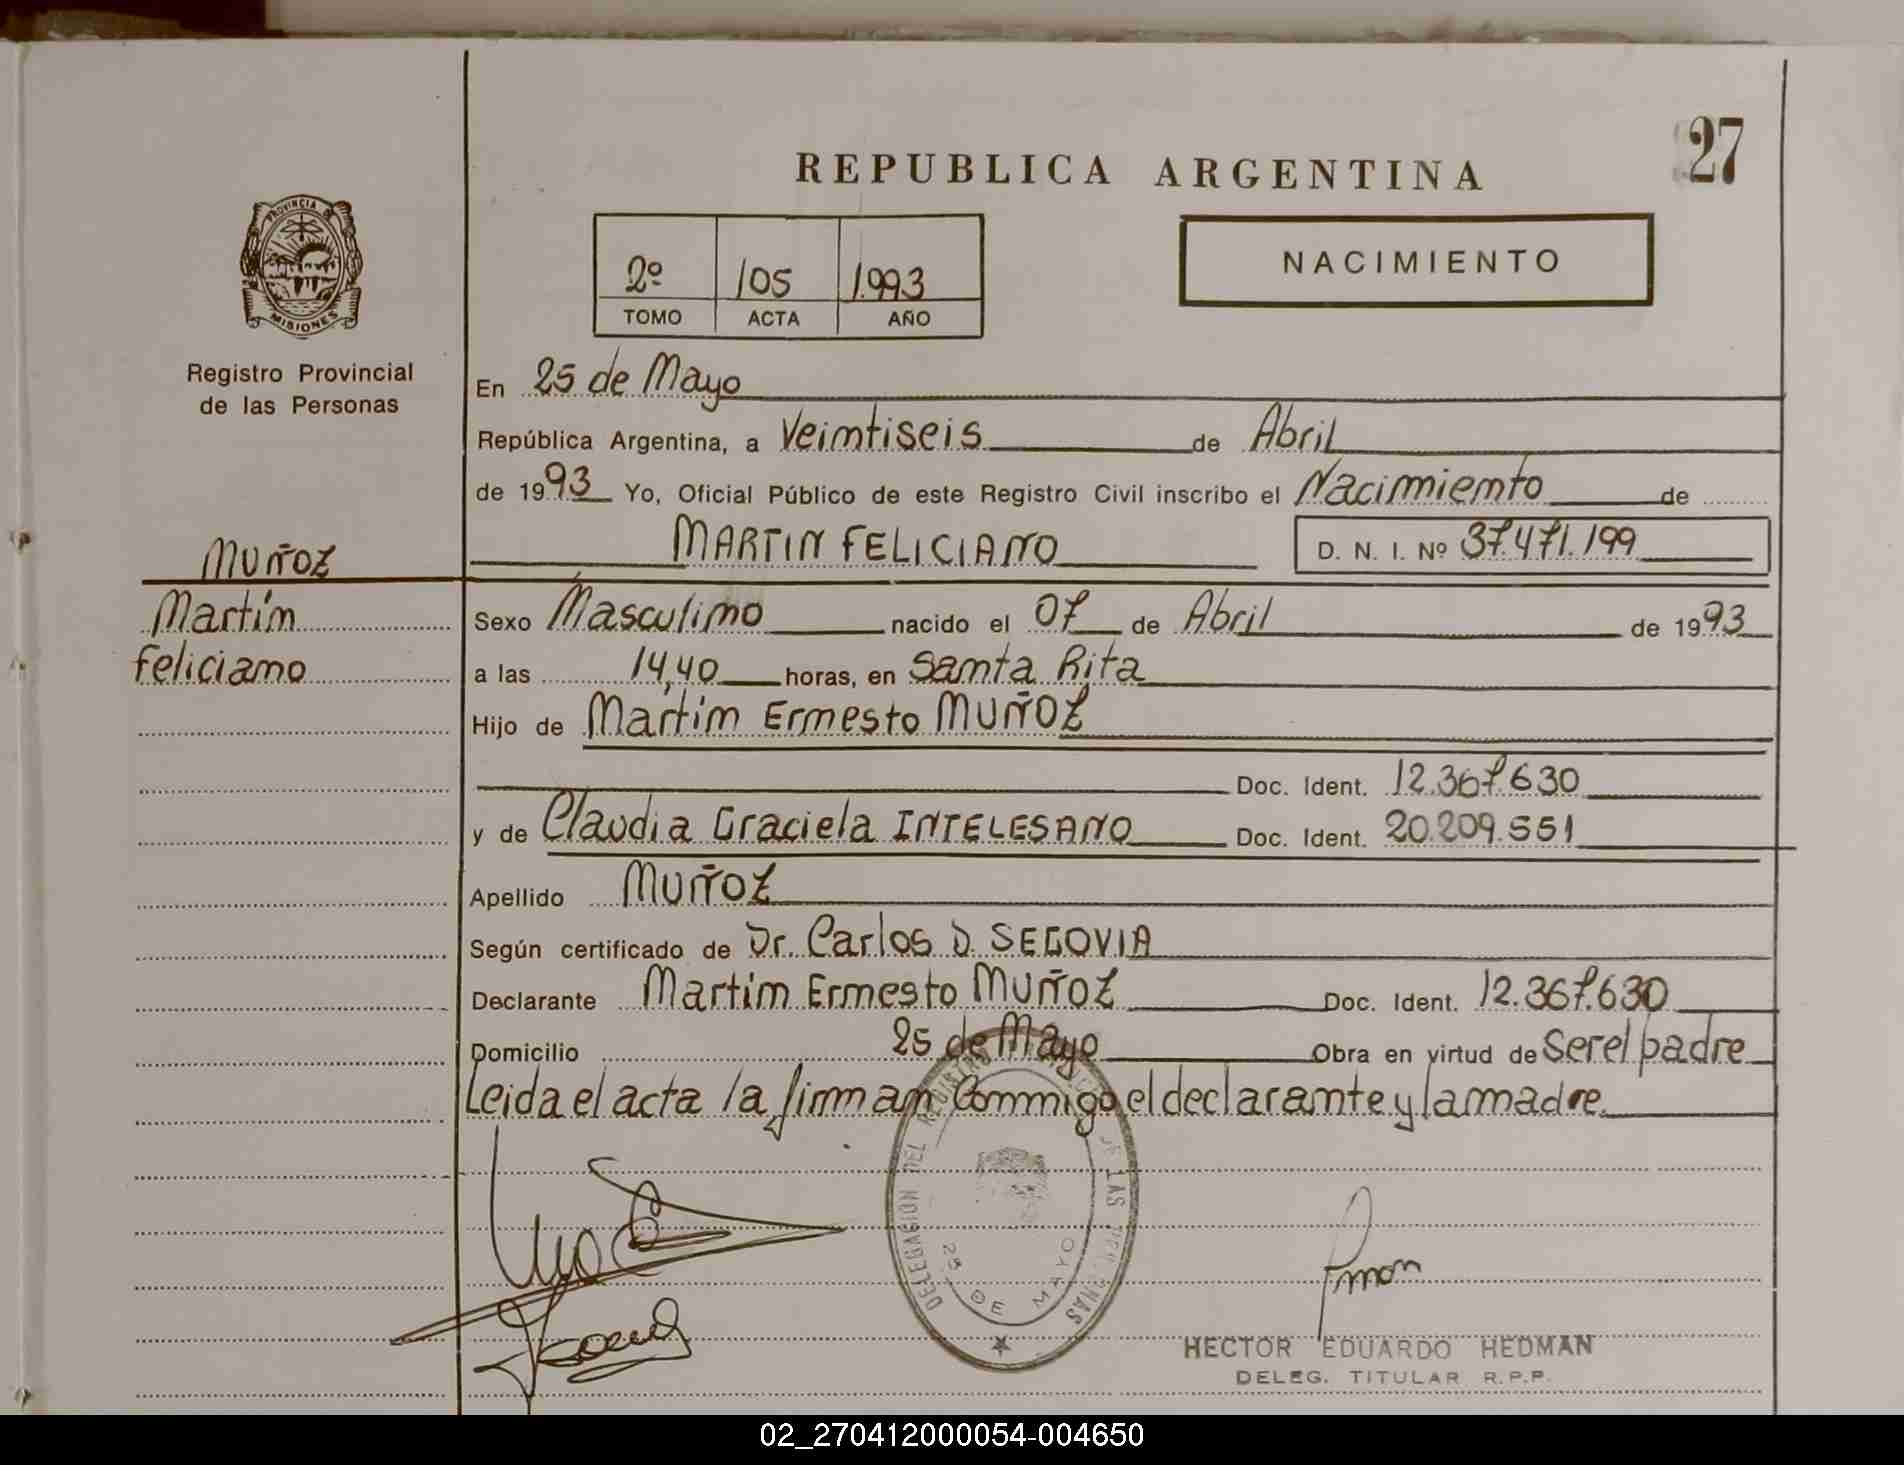 27
REPUBLICA ARGENTINA
PROVINCIA DE
MISIONES
Registro Provincial
de las Personas
2º 105 1.993
TOMO ACTA AÑO
NACIMIENTO
En 25 de Mayo
República Argentina, a Veintiseis de Abril
de 1993 Yo, Oficial Público de este Registro Civil inscribo el Nacimiento de
MUÑOZ
Martín
Feliciano
MARTIN FELICIANO D. N. I. Nº 37.471.199
Sexo Masculino nacido el 07 de Abril de 1993
a las 14,40 horas, en Santa Rita
Hijo de Martin Ernesto MUÑOZ
Doc. Ident. 12.367.630
y de Claudia Graciela INTELESANO Doc. Ident. 20.209.551
Apellido MUÑOZ
Según certificado de Dr. Carlos D. SEGOVIA
Declarante Martin Ernesto MUÑOZ Doc. Ident. 12.367.630
Domicilio 25 de Mayo Obra en virtud de Ser el padre
Leida el acta la firman Conmigo el declarante y la madre.
DELEGACION DEL REGISTRO DE LAS PERSONAS
25 DE MAYO
HECTOR EDUARDO HEDMAN
DELEG. TITULAR R.P.P.
02_270412000054-004650